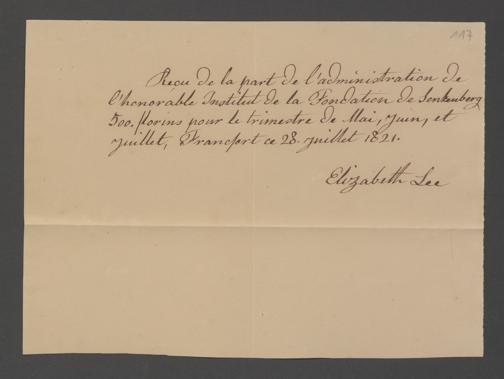 117
Reçu de la part de l'administration de
l'honorable Institut de la Fondation de Senkenberg
500. florins pour le trimestre de Mai, juin, et
juillet, Francfort ce 28. juillet 1821.
Elizabeth Lee